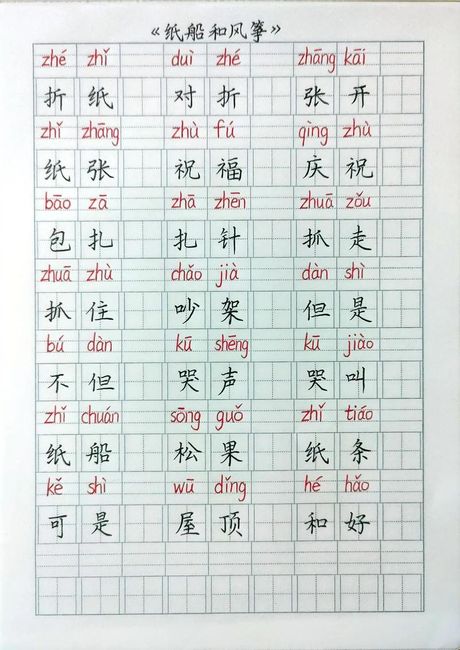 《纸船和风筝》
zhé zhǐ duì zhé zhāng kāi
折纸 对折 张开
zhǐ zhāng zhù fú qìng zhù
纸张 祝福 庆祝
bāo zā zhā zhēn zhuā zǒu
包扎 扎针 抓走
zhuā zhù chǎo jià dàn shì
抓住 吵架 但是
bú dàn kū shēng kū jiào
不但 哭声 哭叫
zhǐ chuán sōng guǒ zhǐ tiáo
纸船 松果 纸条
kě shì wū dǐng hé hǎo
可是 屋顶 和好